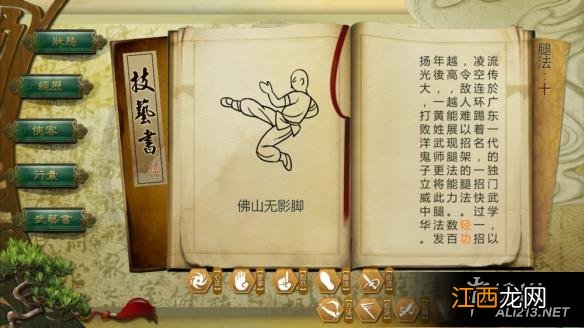 狀態
經歷
俠客
行囊
武藝書
技藝書
佛山无影脚
腿法：十
流传於广东一代的独门武学，以
凌空连环踢着名，一招快过一招
，令敌人难以招架的腿法。轻功
越高，越能展现腿法能力。数百
年後，一黄姓武师更将此腿法发
扬光大，打败洋鬼子立威中华。
江西龙网
ALI213.NET